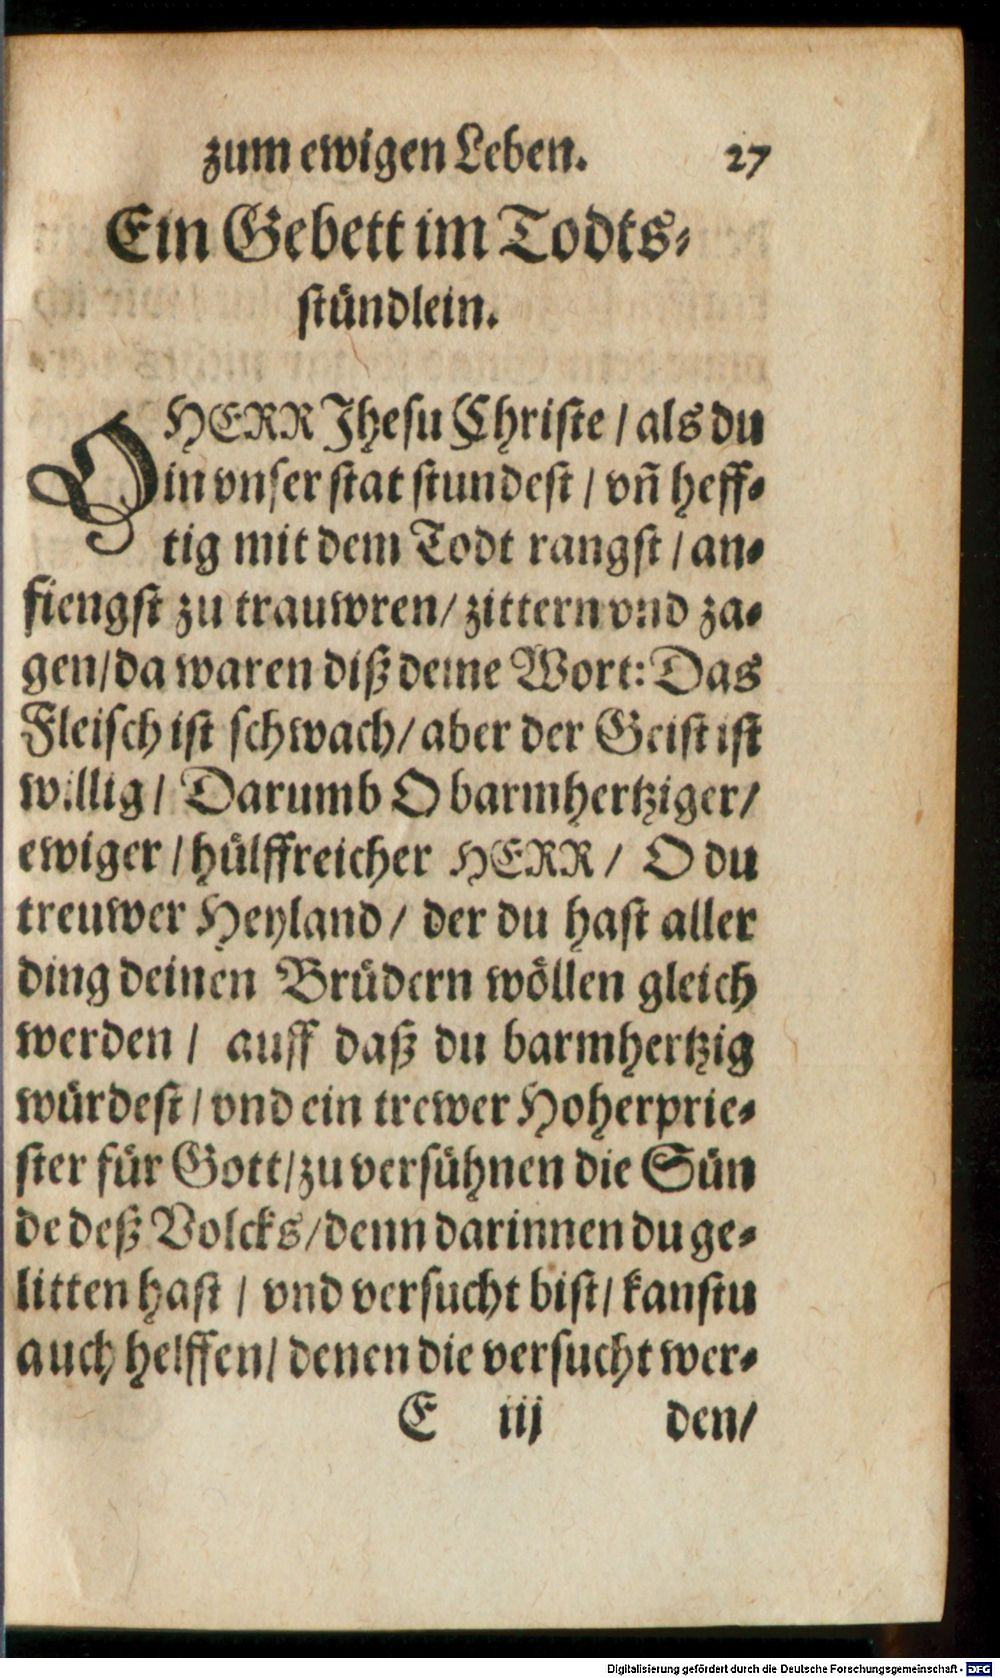 zum ewigen Leben. 27
Ein Gebett im Todts⸗
stündlein.
O HERR Jhesu Christe / als du
in vnser stat stundest / vñ heff⸗
tig mit dem Todt rangst / an⸗
fiengst zu trauwren / zittern vnd za⸗
gen / da waren diß deine Wort: Das
Fleisch ist schwach / aber der Geist ist
willig / Darumb O barmhertziger /
ewiger / hülffreicher HERR / O du
treuwer Heyland / der du hast aller
ding deinen Brüdern wöllen gleich
werden / auff daß du barmhertzig
würdest / vnd ein trewer Hoherprie⸗
ster für Gott / zu versühnen die Sün
de deß Volcks / denn darinnen du ge⸗
litten hast / vnd versucht bist / kanstu
auch helffen / denen die versucht wer⸗
E iij den /
Digitalisierung gefördert durch die Deutsche Forschungsgemeinschaft - DFG